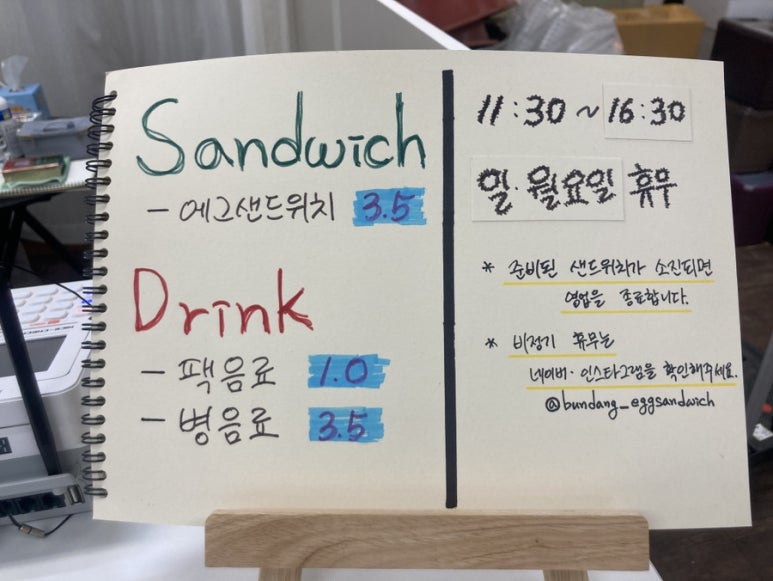 Sandwich
- 에그샌드위치 3.5
Drink
- 팩음료 1.0
- 병음료 3.5
11:30 ~ 16:30
일·월요일 휴무
* 준비된 샌드위치가 소진되면
영업을 종료합니다.
* 비정기 휴무는
네이버·인스타그램을 확인해주세요.
@bundang_eggsandwich